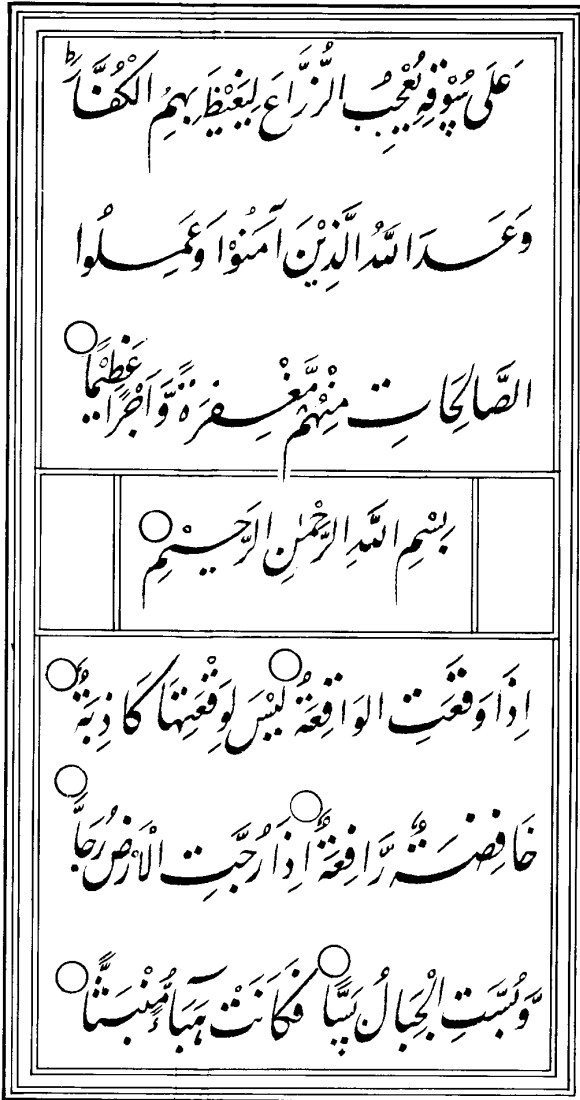 عَلٰى سُوْقِهٖ يُعْجِبُ الزُّرَّاعَ لِيَغِيْظَ بِهِمُ الْكُفَّارَ ؕ
وَعَدَ اللّٰهُ الَّذِيْنَ آمَنُوْا وَعَمِلُوا
الصَّالِحَاتِ مِنْهُمْ مَّغْفِرَةً وَّاَجْرًا عَظِيْمًا ○
بِسْمِ اللّٰهِ الرَّحْمٰنِ الرَّحِيْمِ ○
اِذَا وَقَعَتِ الْوَاقِعَةُ ○ لَيْسَ لِوَقْعَتِهَا كَاذِبَةٌ ○
خَافِضَةٌ رَّافِعَةٌ ○ اِذَا رُجَّتِ الْاَرْضُ رَجًّا ○
وَّبُسَّتِ الْجِبَالُ بَسًّا ○ فَكَانَتْ هَبَآءً مُّنْبَثًّا ○